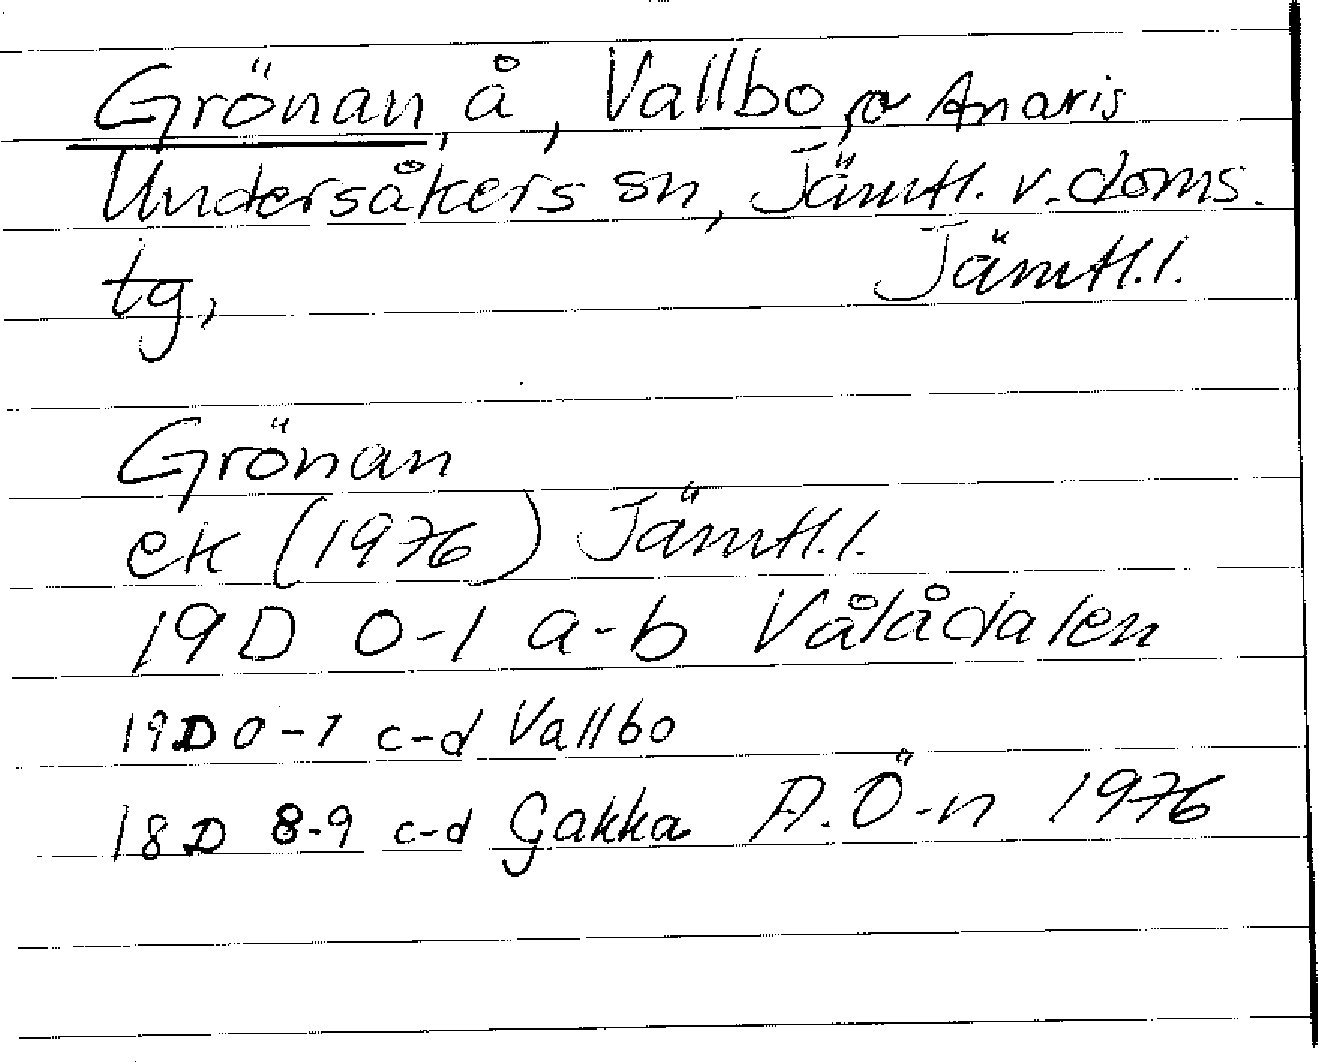 Grönan, å, Vallbo, o Anaris
Undersåkers sn, Jämtl. v. doms.
tg, Jämtl.l.
Grönan
ek (1976) Jämtl.l.
19D 0-1 a-b Vålådalen
19D 0-1 c-d Vallbo
18D 8-9 c-d Gakka A.Ö-n 1976